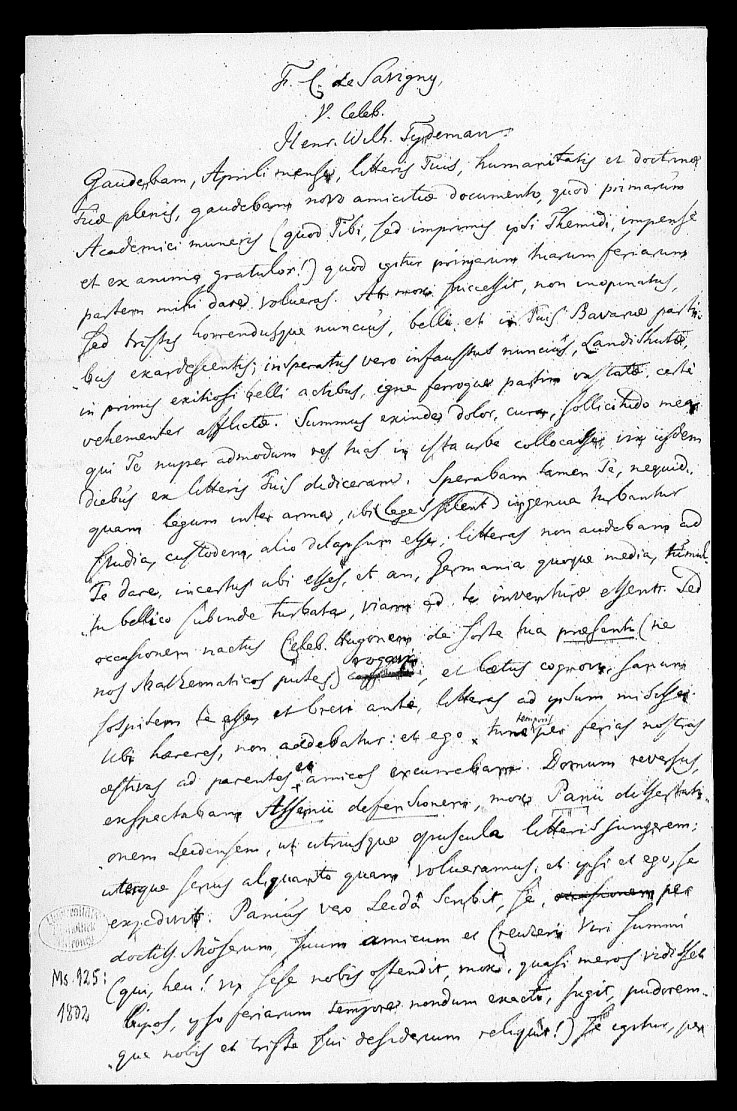 F. C. de Savigny,
V. Celeb.
Henr. Wilh. Tydeman.
Gaudebam, Aprili mense, litteris Tuis, humanitatis et doctrinæ
Tuæ plenis, gaudebam novo amicitiæ documento, quod primarum
Academici muneris (quod Tibi, sed imprimis ipsi Themidi, impense
et ex animo gratulor!) quod igitur primarum tuarum feriarum
partem mihi dare volueras. At mox successit, non inopinatus,
sed tristis horrendusque nuncius, belli et in Tuis Bavariæ parti-
bus exardescentis; insperatus vero infaustus nuncius, Landishutæ,
in primis exitiosi belli actibus, igne ferroque partim vastatæ certe
vehementer afflictæ. Summus exinde dolor, cura, sollicitudo mea
qui Te nuper admodum res tuas in ista urbe collocasse iisdem
diebus ex litteris Tuis didiceram. Sperabam tamen Te, nequid-
quam legum inter arma, ubi (leges silent) ingenua turbantur
studia, custodem, alio delapsum esse; litteras non audebam ad
Te dare, incertus ubi esses, et an, Germania quoque media, tumul-
tu bellico subinde turbata, viam ad te inventuræ essent. Sed
occasionem nactus Celeb. Hugonem de sorte tua præsenti (ne
nos Mathematicos putes) rogavi, et lætus cognovi, sanum
sospitem te esse et brevi ante, litteras ad ipsum misisse.
Ubi hæreres, non addebatur: et ego tunc temporis per ferias nostras
æstivas ad parentes et amicos excurrebam. Domum reversus,
exspectabam Assenii defensionem, mox Panii dissertati-
onem Leidensem, ut utriusque opuscula litteris jungerem;
uterque serius aliquanto quam volueramus, et ipsi et ego, se
expedivit. Panius vero Leidâ scribit, se, per
doctiss. Möserum, suum amicum et Creuzeri Viri summi
(qui, heu! vix sese nobis ostendit, mox, quasi meros vidisset
lippos, ipso feriarum tempore nondum exacto, fugit, pudorem-
que nobis et triste sui desiderium reliquit!) Se igitur, per
Ms. 925:
1802